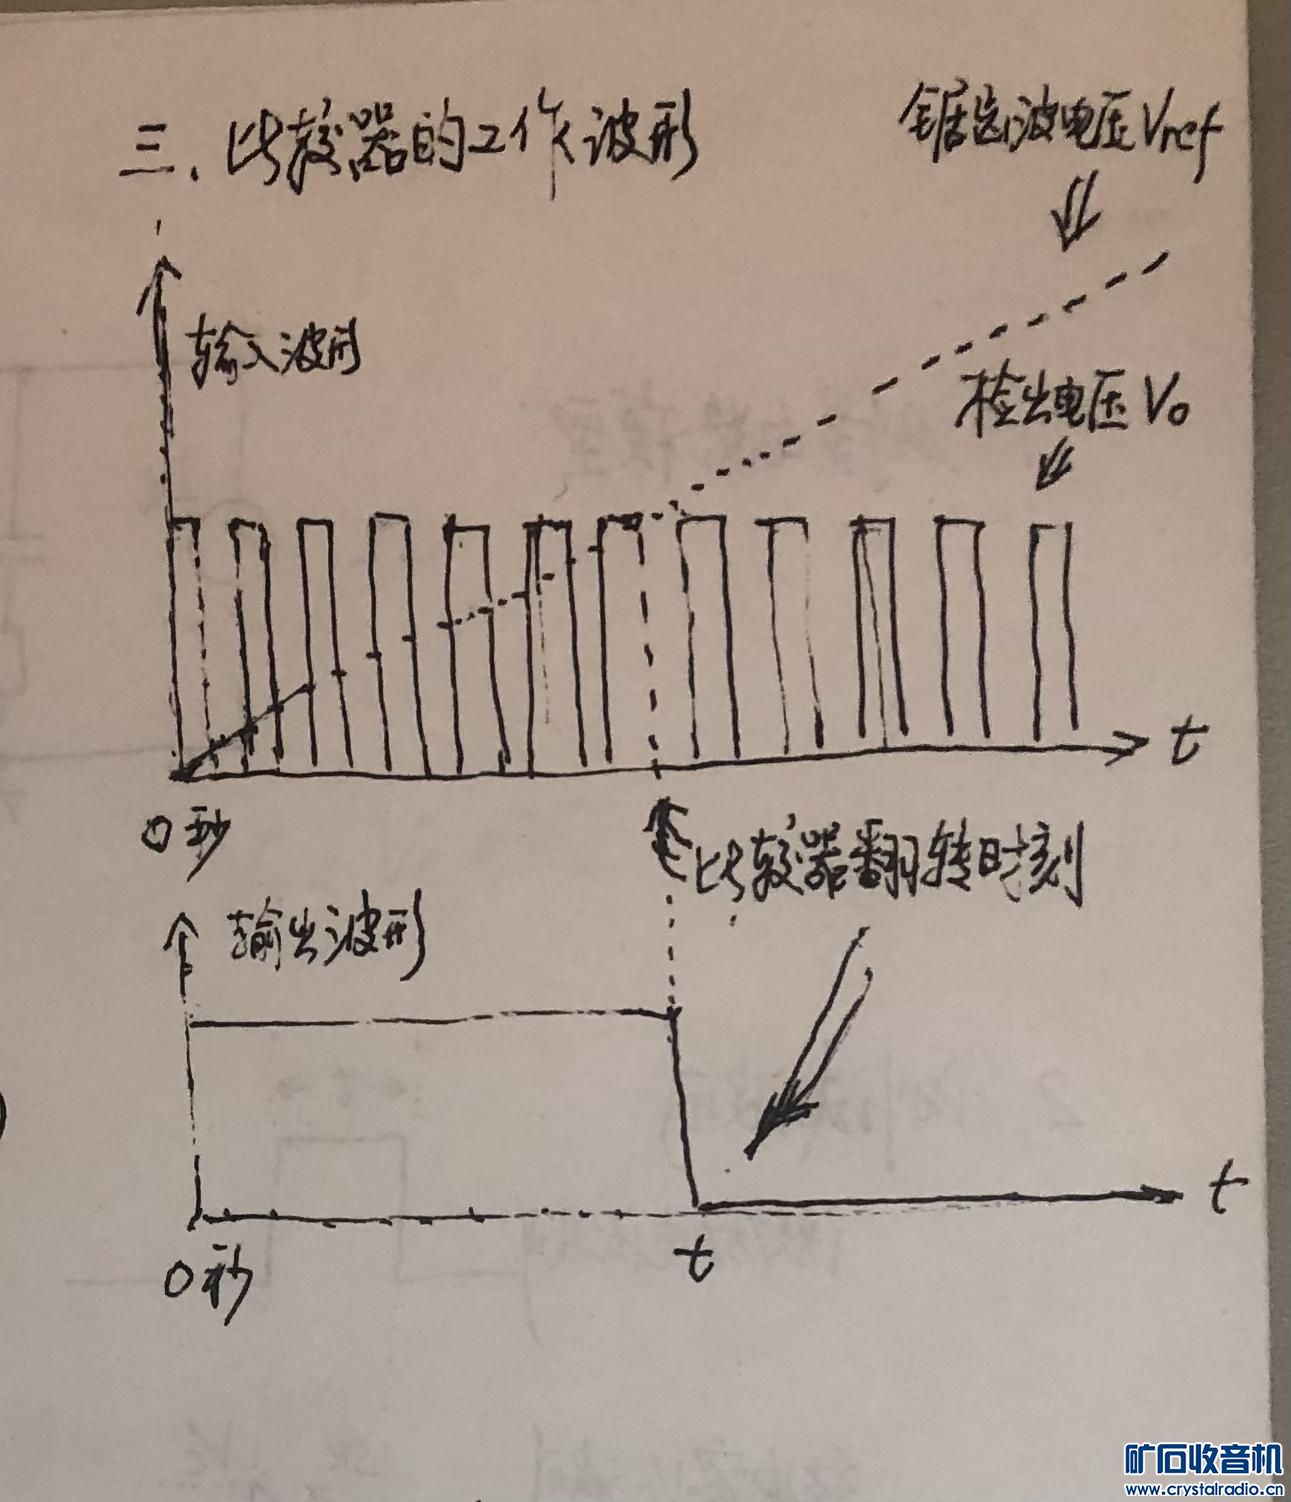 三、比较器的工作波形
锯齿波电压Vref
输入波形
检出电压Vo
t
0秒
比较器翻转时刻
输出波形
t
0秒
t
矿石收音机
www.crystalradio.cn